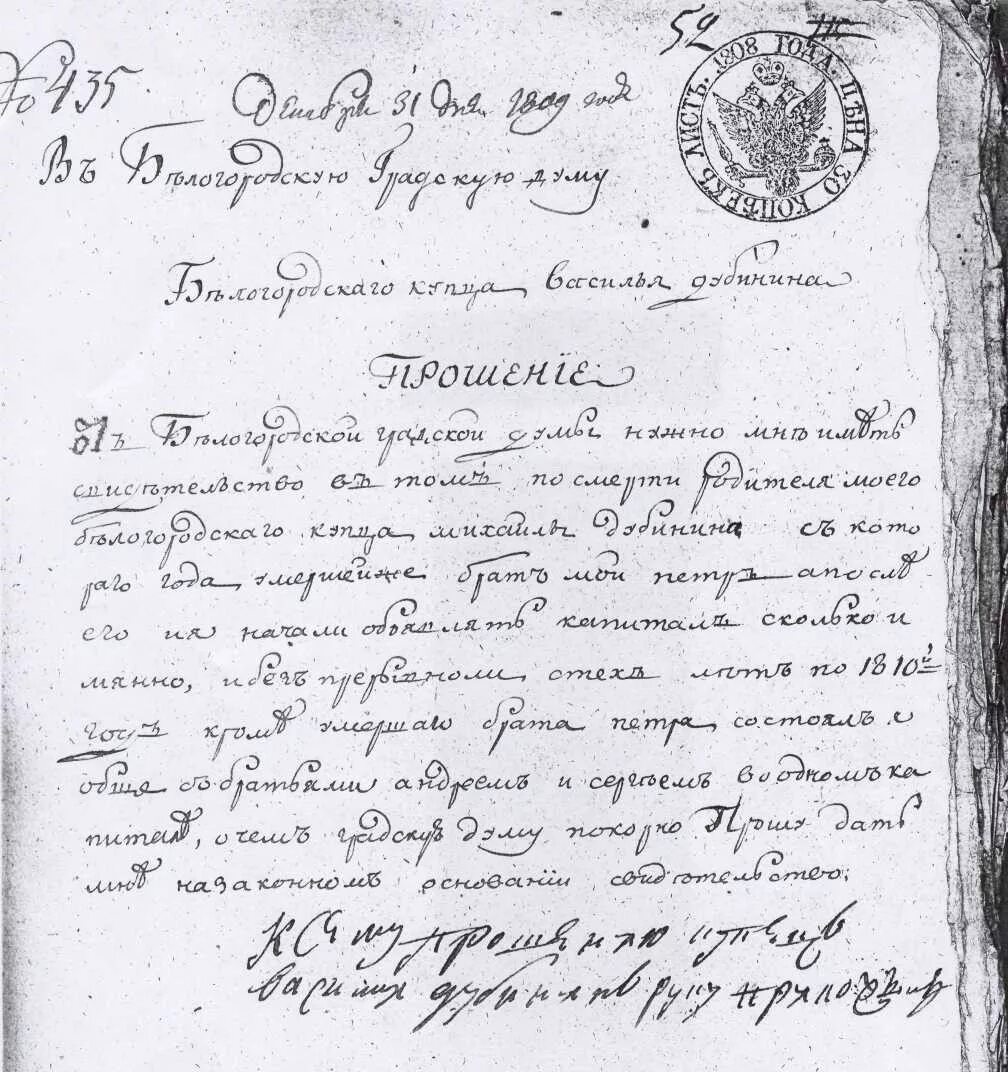 52
№ 435
Декабря 31 дня 1809 года
ЛИСТЪ. 1808 ГОДА. ЦѢНА 30 КОПѢЕКЪ
Въ Бѣлогородскую Градскую думу
Бѣлогородскаго купца Василья дубинина
ПРОШЕНІЕ
Отъ Бѣлогородской градской думы нужно мнѣ имѣть
свидѣтельство въ томъ по смерти родителя моего
бѣлогородскаго купца михаилы дубинина съ кото
раго года умершейже братъ мой петръ а послѣ
его ия начали объявлять капиталъ сколько и
мянно, ибезъ прерывноли стехъ лѣтъ по 1810й
годъ кромѣ умершаго брата петра состоялъ я
обще събратьями андреемъ и сергѣемъ во одномъ ка
питалѣ, о чемъ градскую думу покорно Прошу дать
мнѣ назаконномъ основании свидѣтельство.
К Сему прошению купецъ
василии дубининъ руку приложилъ